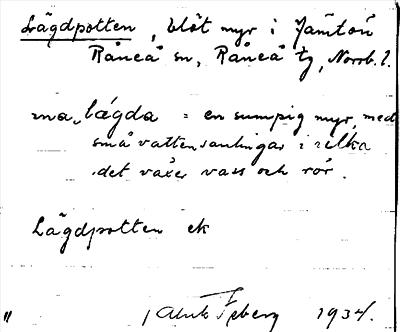 Lägdpotten, blöt myr i Jämtön
Råneå sn, Råneå tg, Norrb. l.
lægda = en sumpig myr, med
små vattensamlingar i vilka
det växer vass och rör.
Lägdpotten ek
1934.